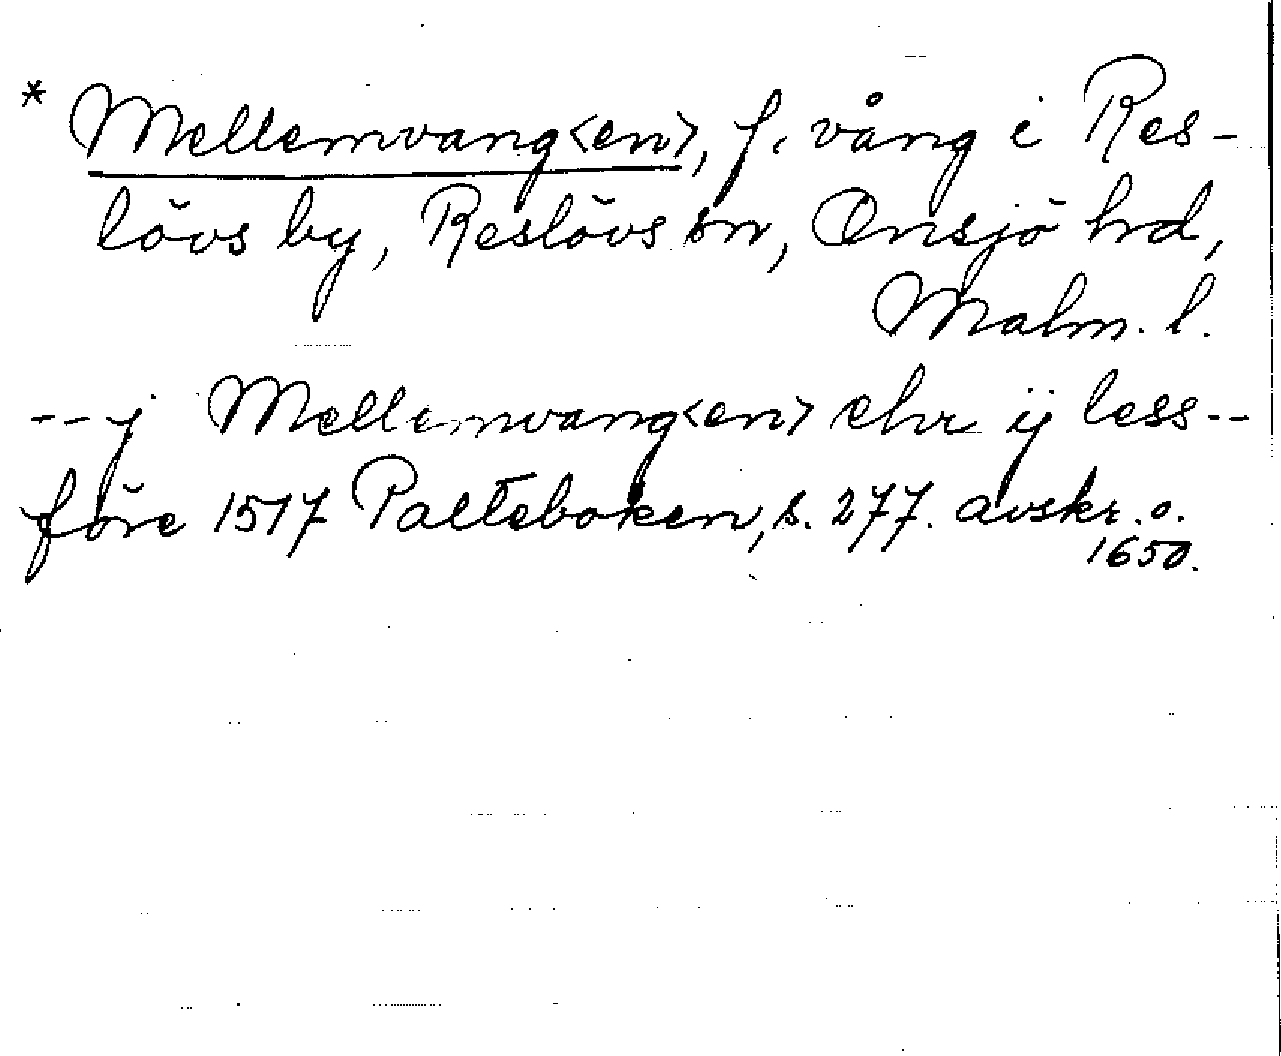 * Mellemvang<en>, f. vång i Res-
lövs by, Reslövs sn, Onsjö hd,
Malm. l.
--j Mellemvang<en> ehr ij less--
före 1517 Palteboken, s. 277. avskr. o.
1650.